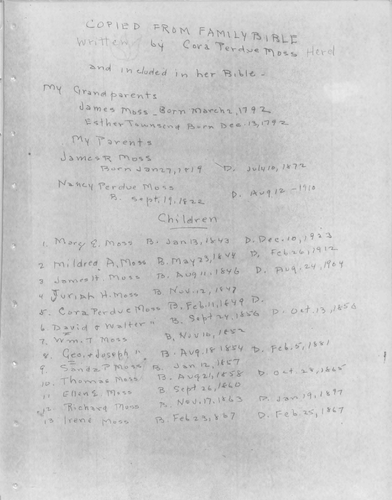 COPIED FROM FAMILY BIBLE
Written by Cora Perdue Moss Herd
and included in her Bible -
My Grandparents
James Moss - Born March 2, 1792
Esther Townsend Born Dec. 13, 1792
My Parents
James R Moss
Born Jan 27, 1819 D. July 10, 1872
Nancy Perdue Moss
B. Sept. 19, 1822 D. Aug 12 - 1910
Children
1. Mary E. Moss B. Jan 13, 1843 D. Dec. 10, 1923
2 Mildred A. Moss B. May 23, 1844 D. Feb 26, 1912
3 James W. Moss B. Aug 11, 1846 D. Aug. 24, 1904
4 Juriah H. Moss B. Nov. 12, 1847
5. Cora Perdue Moss B. Feb. 11, 1849 D.
6 David & Walter " B. Sept 24, 1850 D. Oct. 13, 1850
7. Wm. T. Moss B. Nov 10, 1852
8. Geo. & Joseph " B. Aug. 18 1854 D. Feb. 5, 1881
9. Moss B. Jan 12, 1857
10. Thomas Moss B. Aug 21, 1858 D. Oct. 28,
11 Ellen E. Moss B. Sept 26, 1860
12. Richard Moss B. Nov. 17, 1863 D. Jan 19, 1897
13 Irene Moss B. Feb 23, 1867 D. Feb 25, 1867